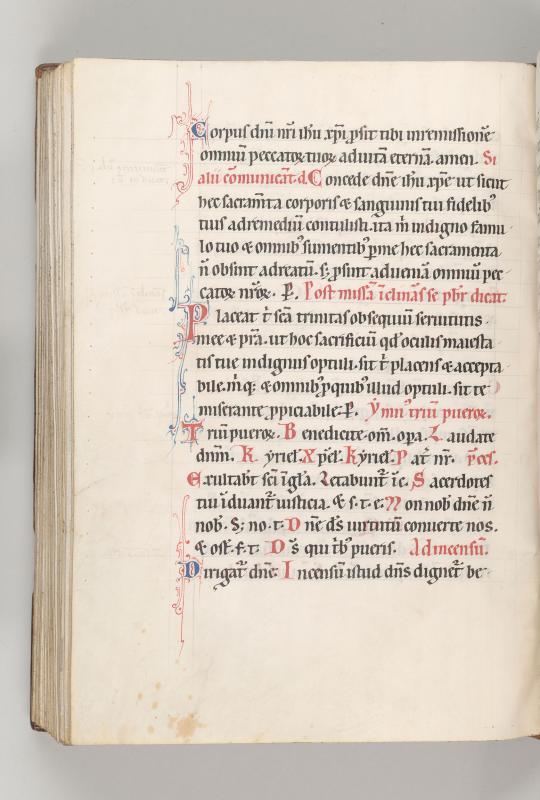 Corpus dñi nr̃i ih̃u xp̃i ꝓsit tibi in remissionẽ
omniũ peccatoꝝ tuoꝝ ad uitã eternã. amen. Si
aliũ cõmunicãt. d. Concede dñe ih̃u xp̃e ut sicut
hec sacram̃ta corporis ⁊ sanguinis tui fidelibꝰ
tuis ad remediũ contulisti. ita m̃ indigno famu
lo tuo ⁊ omnibꝰ sumentibꝰ ꝑ me hec sacramenta
ñ obsint ad reatũ. s; ꝓsint ad ueniã omniũ pec
catoꝝ nr̃oꝝ. P̱. Post missã ĩclinãs se pb̃r dicat.
Placeat t̃ sc̃a trinitas obsequiũ seruitutis
mee ⁊ p̃ra. ut hoc sacrificiũ qd̃ oculis maiesta
tis tue indignus optuli. sit t̃ placens ⁊ accepta
bile. m̃q; ⁊ omnibꝰ ꝓ quibꝰ illud optuli. sit te
miserante ꝓpiciabile. P̱. Ymnꝰ triũ pueroꝝ.
Triũ pueroꝝ. Benedicite. om̃. oꝑa. L. audate
dñm. Kyriel̃. Xp̃el̃. Kyriel̃. Pat̃ nr̃. p̃ces.
Exultab̃t sc̃i ĩ gl̃a. Letabunt̃ ĩ c̃. Sacerdotes
tui ĩduant̃ iusticia. ⁊ s. t. e. Non nob̃ dñe ñ
nob̃. S; no. t. Dñe d̃s uirtutũ conuerte nos.
⁊ ost̃. f. t. D̃s qui tͥbꝰ pueris. Ad incensũ.
Dirigat̃ dñe. Incensũ istud dñs dignet̃ be